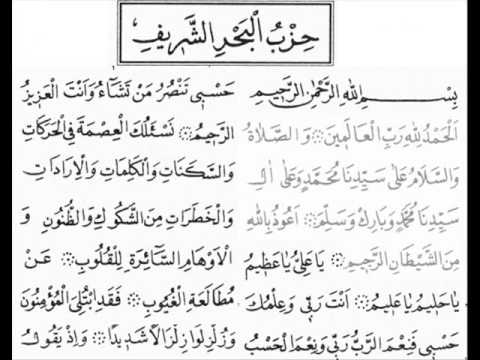 حِزْبُ الْبَحْرِ الشَّرِيفِ
بِسْمِ اللهِ الرَّحْمٰنِ الرَّحِيمِ
اَلْحَمْدُ لِلهِ رَبِّ الْعَالَمِينَ ۞ وَالصَّلَاةُ
وَالسَّلَامُ عَلٰى سَيِّدِنَا مُحَمَّدٍ وَعَلٰى اٰلِ
سَيِّدِنَا مُحَمَّدٍ وَبَارِكْ وَسَلِّمْ ۞ اَعُوذُ بِاللهِ
مِنَ الشَّيْطَانِ الرَّجِيمِ ۞ يَا عَلِىُّ يَا عَظِيمُ
يَا حَلِيمُ يَا عَلِيمُ ۞ اَنْتَ رَبِّى وَعِلْمُكَ
حَسْبِى فَنِعْمَ الرَّبُّ رَبِّى وَنِعْمَ الْحَسْبُ
حَسْبِى تَنْصُرُ مَنْ تَشَاۤءُ وَاَنْتَ الْعَزِيزُ
الرَّحِيمُ ۞ نَسْئَلُكَ الْعِصْمَةَ فِى الْحَرَكَاتِ
وَالسَّكَنَاتِ وَالْكَلِمَاتِ وَالْاِرَادَاتِ
وَالْخَطَرَاتِ مِنَ الشُّكُوكِ وَالظُّنُونِ وَ
الْاَوْهَامِ السَّاتِرَةِ لِلْقُلُوبِ ۞ عَنْ
مُطَالَعَةِ الْغُيُوبِ ۞ فَقَدِ ابْتُلِىَ الْمُؤْمِنُونَ
وَزُلْزِلُوا زِلْزَالًا شَدِيدًا ۞ وَاِذْ يَقُولُ